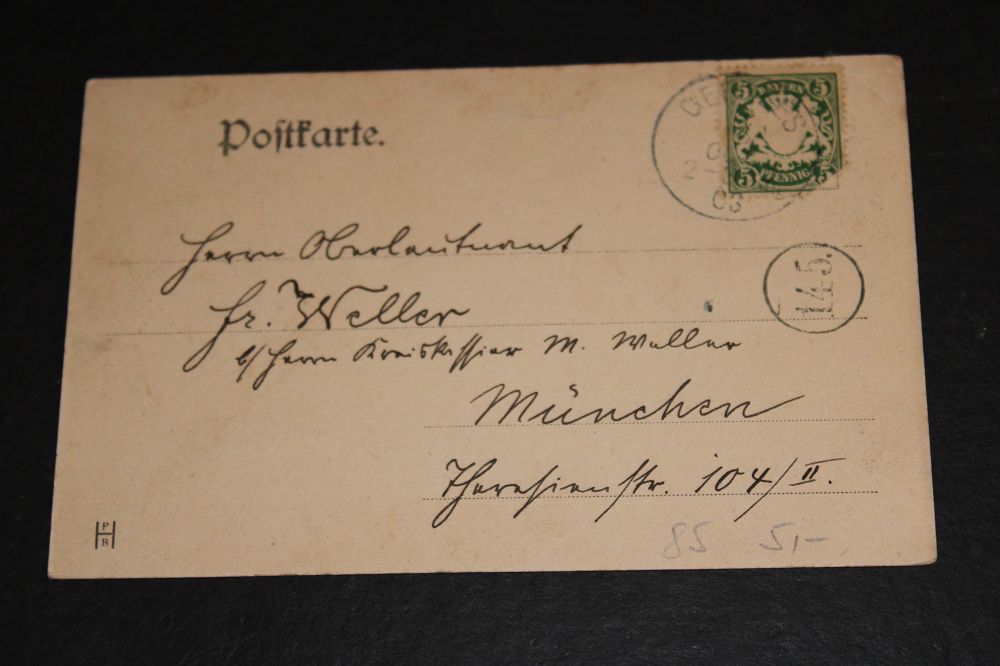 Postkarte.
5 BAYERN 5
5 PFENNIG 5
GE
2
03
Herrn Oberleutnant
Fr. Weller
b/ Herrn Kreiskassier M. Weller
145.
München
Theresienstr. 104/II.
P
B
85 51-